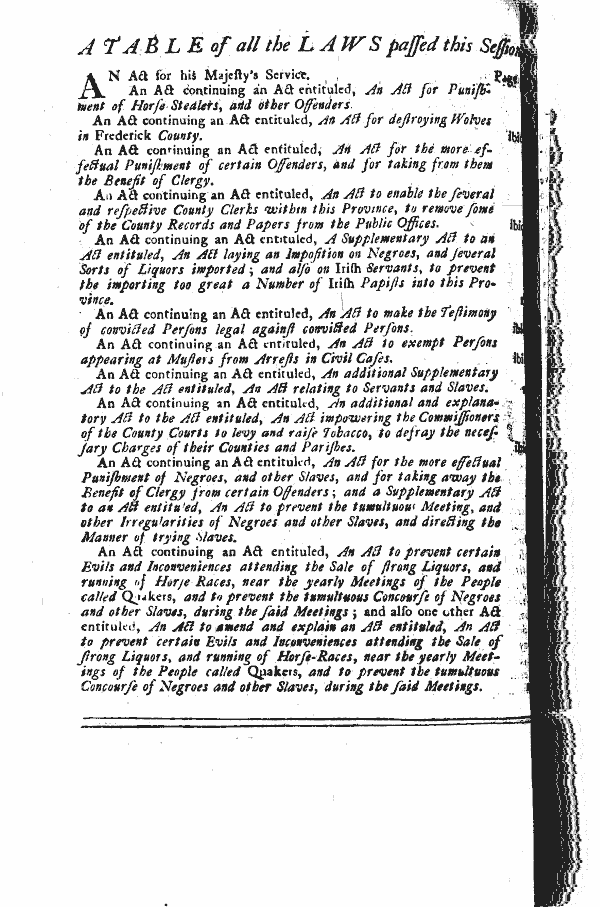 A TABLE of all the LAWS paſſed this Seſſion
AN Act for his Majeſty's Service. Page
An Act continuing an Act entituled, An Act for Puniſh-
ment of Horſe-Stealers, and other Offenders.
An Act continuing an Act entituled, An Act for deſtroying Wolves
in Frederick County. Ibi
An Act continuing an Act entituled, An Act for the more ef-
fectual Puniſhment of certain Offenders, and for taking from them
the Benefit of Clergy.
An Act continuing an Act entituled, An Act to enable the ſeveral
and reſpective County Clerks within this Province, to remove ſome
of the County Records and Papers from the Public Offices. Ibi
An Act continuing an Act entituled, A Supplementary Act to an
Act entituled, An Act laying an Impoſition on Negroes, and ſeveral
Sorts of Liquors imported; and alſo on Iriſh Servants, to prevent
the importing too great a Number of Iriſh Papiſts into this Pro-
vince.
An Act continuing an Act entituled, An Act to make the Teſtimony
of convicted Perſons legal againſt convicted Perſons. Ibi
An Act continuing an Act entituled, An Act to exempt Perſons
appearing at Muſters from Arreſts in Civil Caſes. Ibi
An Act continuing an Act entituled, An additional Supplementary
Act to the Act entituled, An Act relating to Servants and Slaves.
An Act continuing an Act entituled, An additional and explana-
tory Act to the Act entituled, An Act impowering the Commiſſioners
of the County Courts to levy and raiſe Tobacco, to defray the neceſ-
ſary Charges of their Counties and Pariſhes. Ib
An Act continuing an Act entituled, An Act for the more effectual
Puniſhment of Negroes, and other Slaves, and for taking away the
Benefit of Clergy from certain Offenders; and a Supplementary Act
to an Act entituled, An Act to prevent the tumultuous Meeting, and
other Irregularities of Negroes and other Slaves, and directing the
Manner of trying Slaves.
An Act continuing an Act entituled, An Act to prevent certain
Evils and Inconveniences attending the Sale of ſtrong Liquors, and
running of Horſe Races, near the yearly Meetings of the People
called Quakers, and to prevent the tumultuous Concourſe of Negroes
and other Slaves, during the ſaid Meetings; and alſo one other Act
entituled, An Act to amend and explain an Act entituled, An Act
to prevent certain Evils and Inconveniences attending the Sale of
ſtrong Liquors, and running of Horſe-Races, near the yearly Meet-
ings of the People called Quakers, and to prevent the tumultuous
Concourſe of Negroes and other Slaves, during the ſaid Meetings.